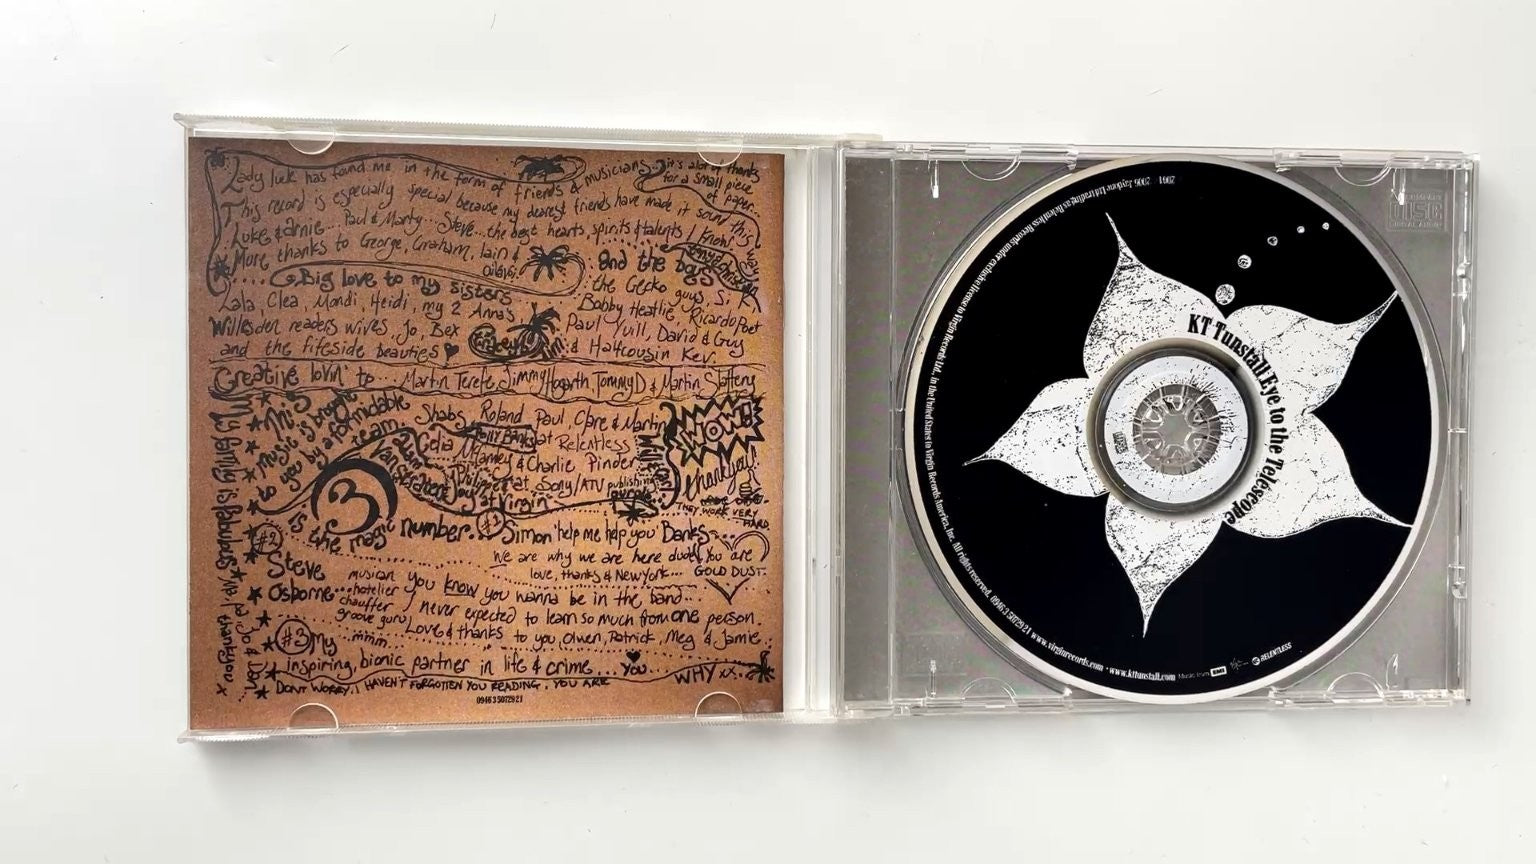 Lady luck has found me in the form of friends & musicians...
it's alot of thanks
for a small piece
of paper...
This record is especially special because my dearest friends have made it sound this way
Luke & Arnie... Paul & Marty... Steve... the best hearts, spirits & talents I know!
More thanks to George, Graham, Iain &
and the boys
.... Big love to my sisters
Lala, Clea, Mandi, Heidi, my 2 Anna's
Willesden readers wives, Jo, Bex
and the fifeside beauties
the Gecko guys, S. K
Bobby Heatlie, Ricardo Poet
Paul Yuill, David & Guy
& Halfcousin Kev.
Creative lovin' to Martin Terefe, Jimmy Hogarth, Tommy D & Martin Slattery
My
music is brought
to you by a formidable
team.
Shabs, Roland, Paul, Clare & Martin
Polly Banks at Relentless
& Charlie Pinder
at Sony/ATV publishing
at Virgin
WOW!!
thankyou!
THEY WORK VERY
HARD
3
is the magic number.
#1 Simon 'help me help you' Banks....
We are why we are here dude. You are
love, thanks & New York.... GOLD DUST.
#2
Steve
Osborne...
musician
hotelier
chauffer
groove guru
you know you wanna be in the band...
I never expected to learn so much from one person.
Love & thanks to you, Olwen, Patrick, Meg & Jamie...
#3 my
mmm...
inspiring, bionic partner in life & crime... you...
WHY xx
DON'T WORRY. I HAVEN'T FORGOTTEN YOU READING. YOU ARE
0946 3 50729 2 1
COMPACT
DISC
DIGITAL AUDIO
KT Tunstall Eye to the Telescope
Records under exclusive license to Virgin Records Ltd., in the United States to Virgin Records America, Inc. All rights reserved. 0946 3 50729 2 1 www.virginrecords.com · www.kttunstall.com Music from EMI
RELENTLESS